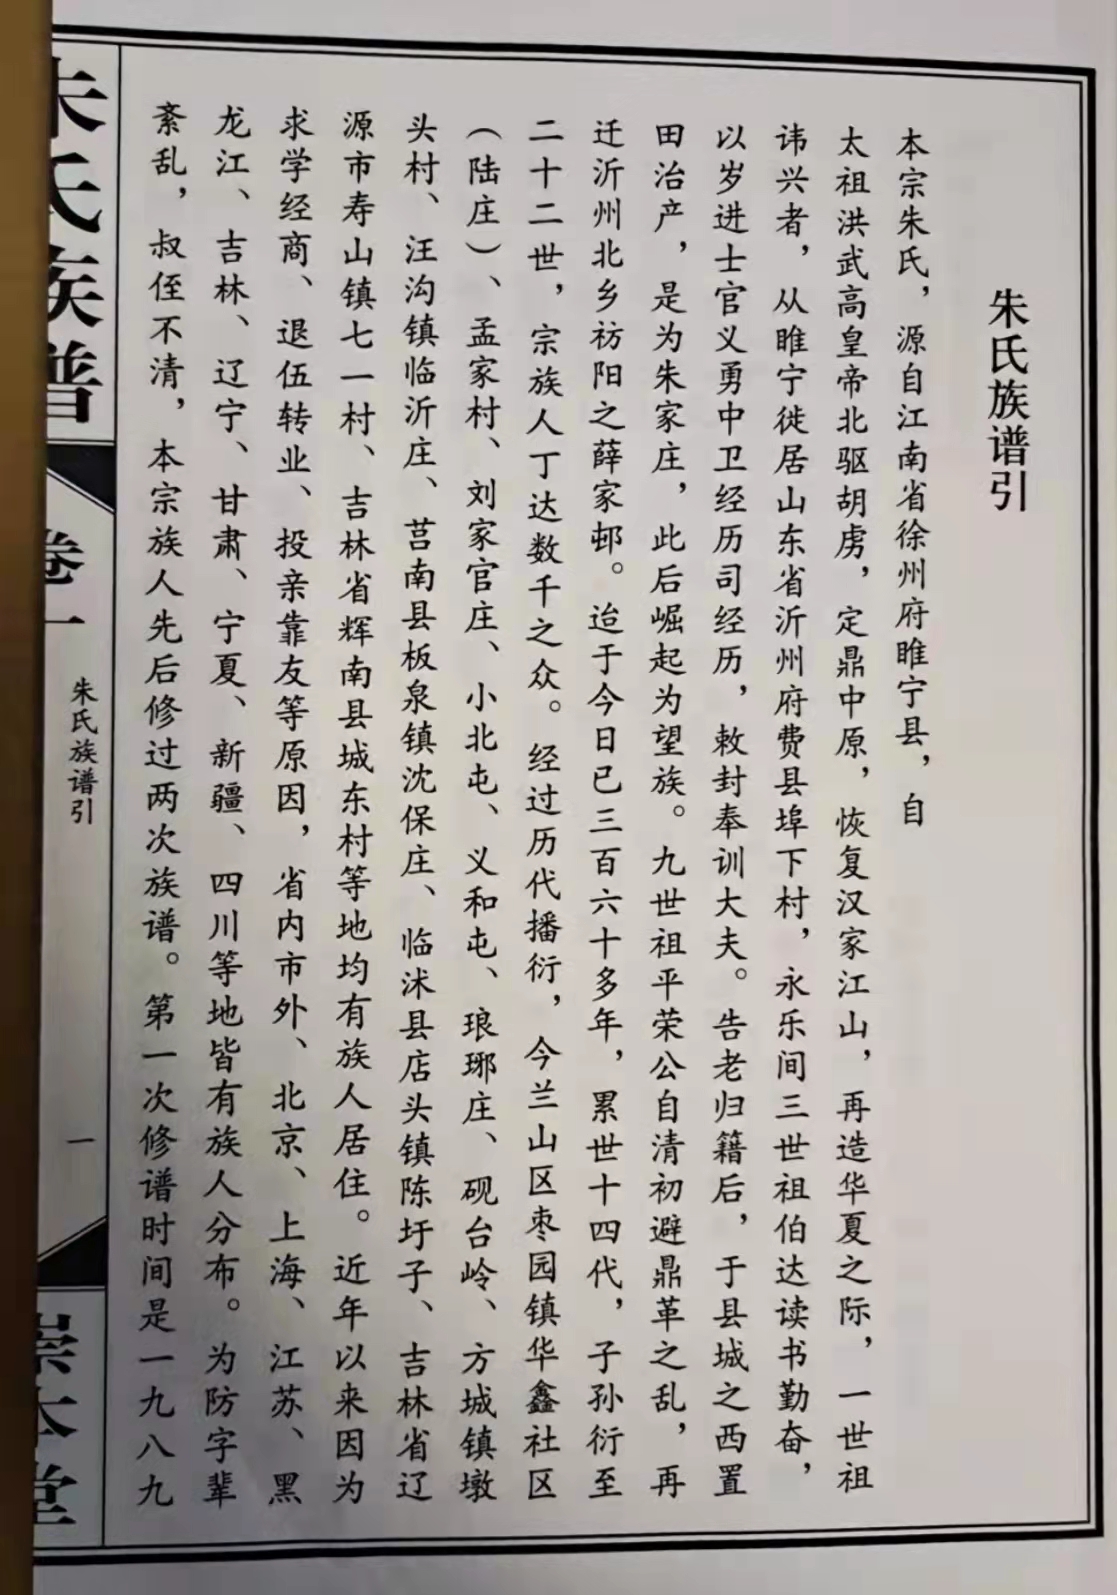 朱氏族谱引
本宗朱氏，源自江南省徐州府睢宁县，自
太祖洪武高皇帝北驱胡虏，定鼎中原，恢复汉家江山，再造华夏之际，一世祖
讳兴者，从睢宁徙居山东省沂州府费县埠下村，永乐间三世祖伯达读书勤奋，
以岁进士官义勇中卫经历司经历，敕封奉训大夫。告老归籍后，于县城之西置
田治产，是为朱家庄，此后崛起为望族。九世祖平荣公自清初避鼎革之乱，再
迁沂州北乡祊阳之薛家邨。迨于今日已三百六十多年，累世十四代，子孙衍至
二十二世，宗族人丁达数千之众。经过历代播衍，今兰山区枣园镇华鑫社区
（陆庄）、孟家村、刘家官庄、小北屯、义和屯、琅琊庄、砚台岭、方城镇墩
头村、汪沟镇临沂庄、莒南县板泉镇沈保庄、临沭县店头镇陈圩子、吉林省辽
源市寿山镇七一村、吉林省辉南县城东村等地均有族人居住。近年以来因为
求学经商、退伍转业、投亲靠友等原因，省内市外、北京、上海、江苏、黑
龙江、吉林、辽宁、甘肃、宁夏、新疆、四川等地皆有族人分布。为防字辈
紊乱，叔侄不清，本宗族人先后修过两次族谱。第一次修谱时间是一九八九
朱氏族谱
卷一
朱氏族谱引
一
崇本堂